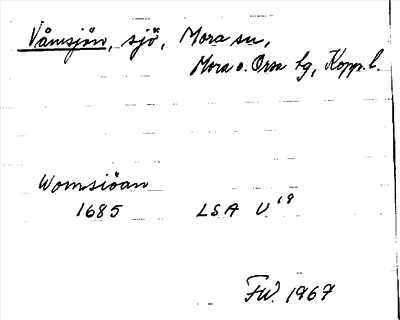 Våmsjön, sjö, Mora sn,
Mora o. Orsa tg, Kopp. l.
Womsiöan
1685 LSA U¹⁹
FW. 1967